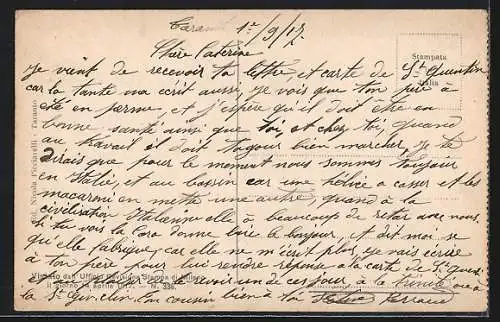 Tarant 1e/9/17
Chère Catherine
Je vient de recevoir ta lettre et carte de St Quentin
car la tante ma ecrit aussi, je vois que ton père à
été en perme et j'espère qu'il doit être en
bonne santé ainsi que toi et chez toi, quand
au travail il doit toujour bien marcher, je te
dirais que pour le moment nous sommes toujour
en Italie, et au bassin car une hélice a casser et les
macaroni en mette une autre, quand à la
civilisation Italienne elle à beaucoups de retar avec nous.
si tu vois la Cora donne lui le bonjour, et dit moi se
qu'elle fabrique car elle ne m'écrit plus, je vais écrire
a ton père pour lui rendre réponse a la carte de St Quentin
revoir un de ces jours à la Trinité ou a
la St Quentin. Ton cousin bien à toi
Stampata
Italia
Ed. Nicola Piccinelli - Taranto
Visto dall'Ufficio Revisione Stampa di Milano
il giorno 14 aprile 1917 - N. 336.